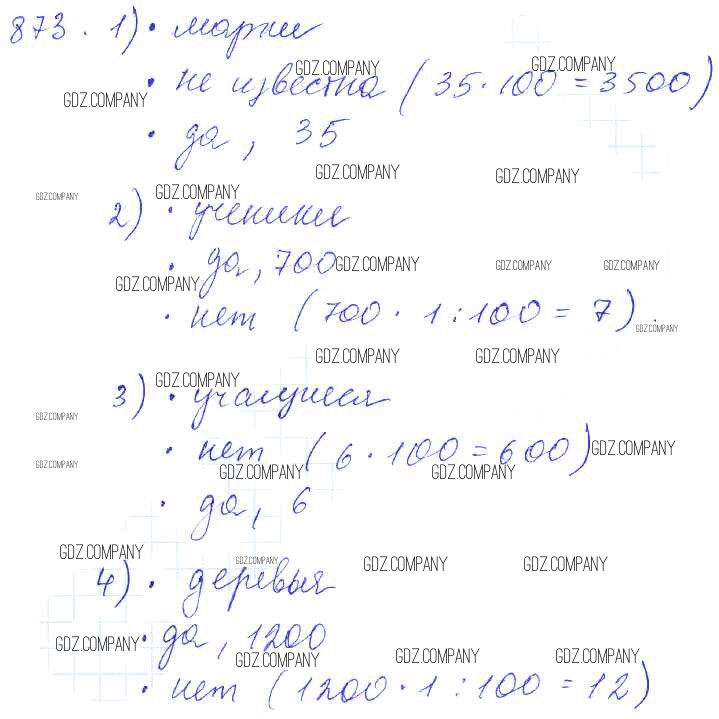 873. 1) • марки
GDZ.COMPANY GDZ.COMPANY
• не известна (35·100 = 3500)
GDZ.COMPANY
• да, 35
GDZ.COMPANY GDZ.COMPANY
GDZ.COMPANY GDZ.COMPANY
2) • ученики
• да, 700 GDZ.COMPANY GDZ.COMPANY GDZ.COMPANY
GDZ.COMPANY
• нет (700 · 1 : 100 = 7)
GDZ.COMPANY
GDZ.COMPANY GDZ.COMPANY
GDZ.COMPANY
3) • учащиеся
GDZ.COMPANY
• нет (6 · 100 = 600) GDZ.COMPANY
GDZ.COMPANY GDZ.COMPANY GDZ.COMPANY
• да, 6
GDZ.COMPANY GDZ.COMPANY GDZ.COMPANY GDZ.COMPANY
4) • деревья
GDZ.COMPANY • да, 1200
GDZ.COMPANY GDZ.COMPANY GDZ.COMPANY
• нет (1200 · 1 : 100 = 12)